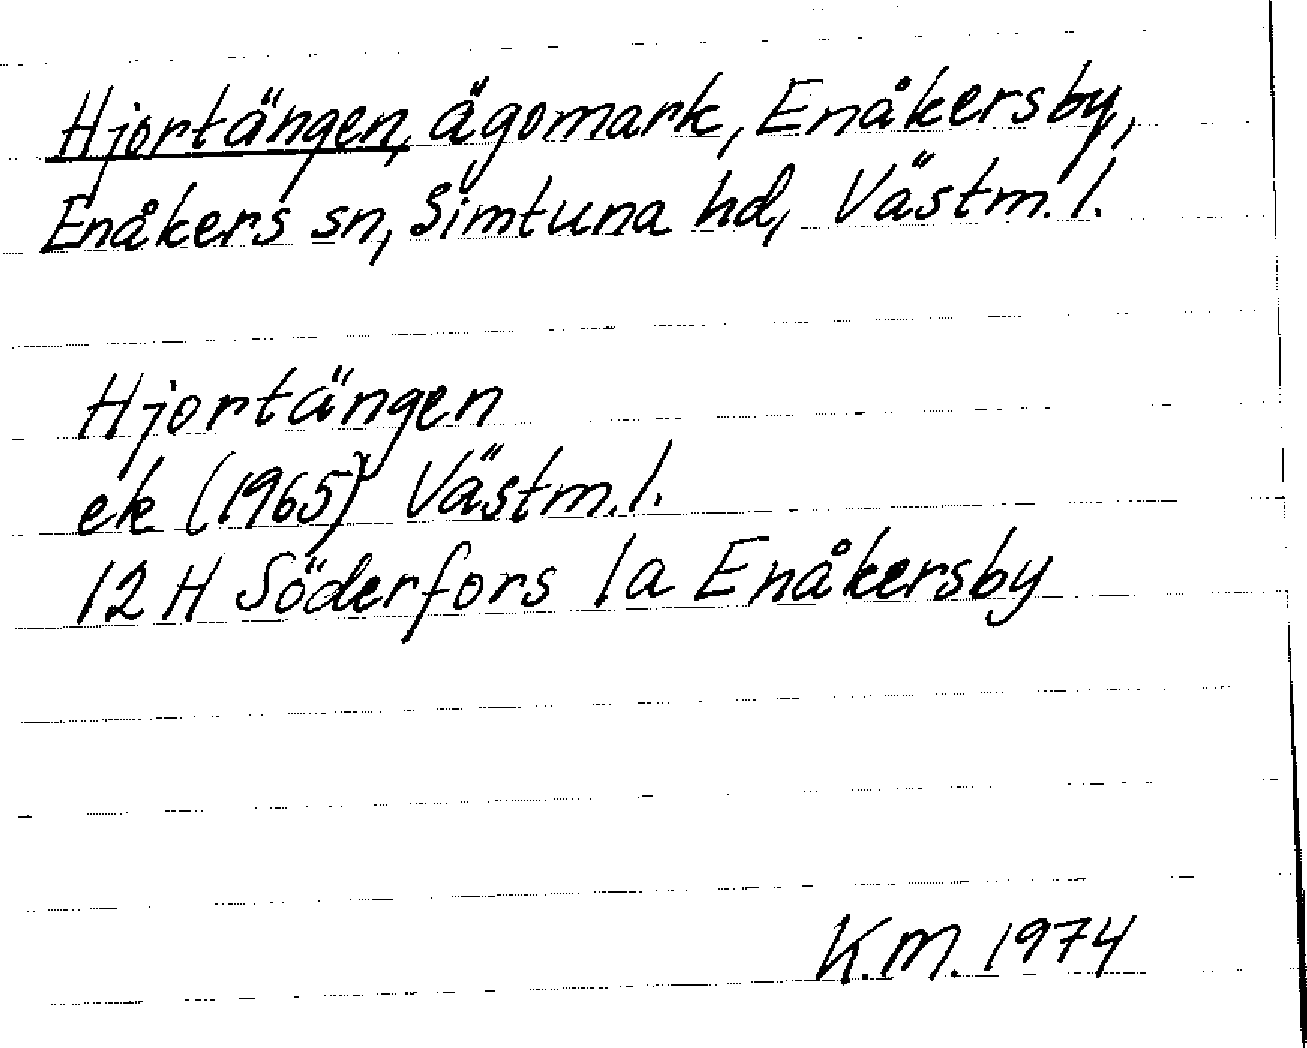 Hjortängen, ägomark, Enåkersby,
Enåkers sn, Simtuna hd, Västm. l.
Hjortängen
ek (1965) Västm. l.
12 H Söderfors 1a Enåkersby
K.M. 1974